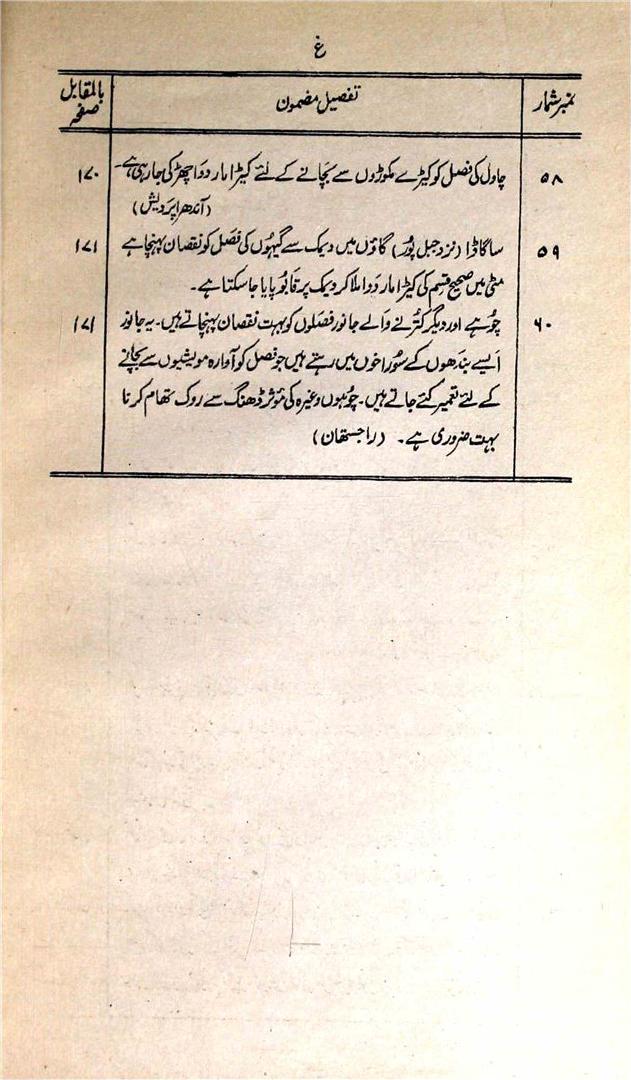 غ
نمبر شمار تفصیل مضمون بالمقابل صفحہ
۵۸ چاول کی فصل کو کیڑے مکوڑوں سے بچانے کے لئے کیڑا مار دوا چھڑکی جا رہی ہے۔ ۱۷۰
(آندھرا پردیش)
۵۹ ساگاڈا (نزد جبل پُور) گاؤں میں دیمک سے گیہوں کی فصل کو نقصان پہنچا ہے ۱۷۱
مٹی میں صحیح قسم کی کیڑا مار دوا ملا کر دیمک پر قابُو پایا جا سکتا ہے۔
۶۰ چُوہے اور دیگر کُترنے والے جانور فصلوں کو بہت نقصان پہنچاتے ہیں۔ یہ جانور ۱۷۱
ایسے بندھوں کے سُوراخوں میں رہتے ہیں جو فصل کو آوارہ مویشیوں سے بچانے
کے لئے تعمیر کئے جاتے ہیں۔ چُوہوں وغیرہ کی مؤثر ڈھنگ سے روک تھام کرنا
بہت ضروری ہے۔ (راجستھان)